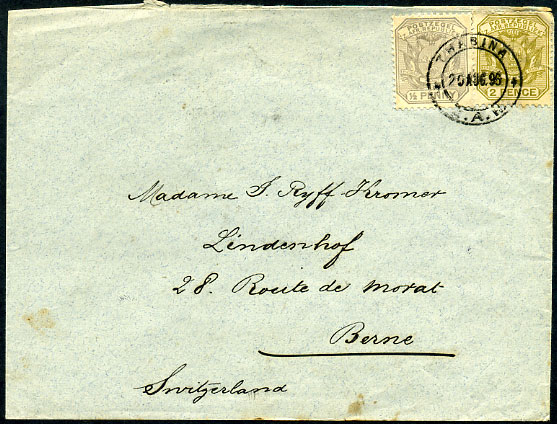 POSTZEGEL
POSTZEGEL
½ PENNY
2 PENCE
THABINA
20 AUG. 96
Z.A.R.
Madame I. Ryff Kromer
Lindenhof
28. Route de Morat
Berne
Switzerland